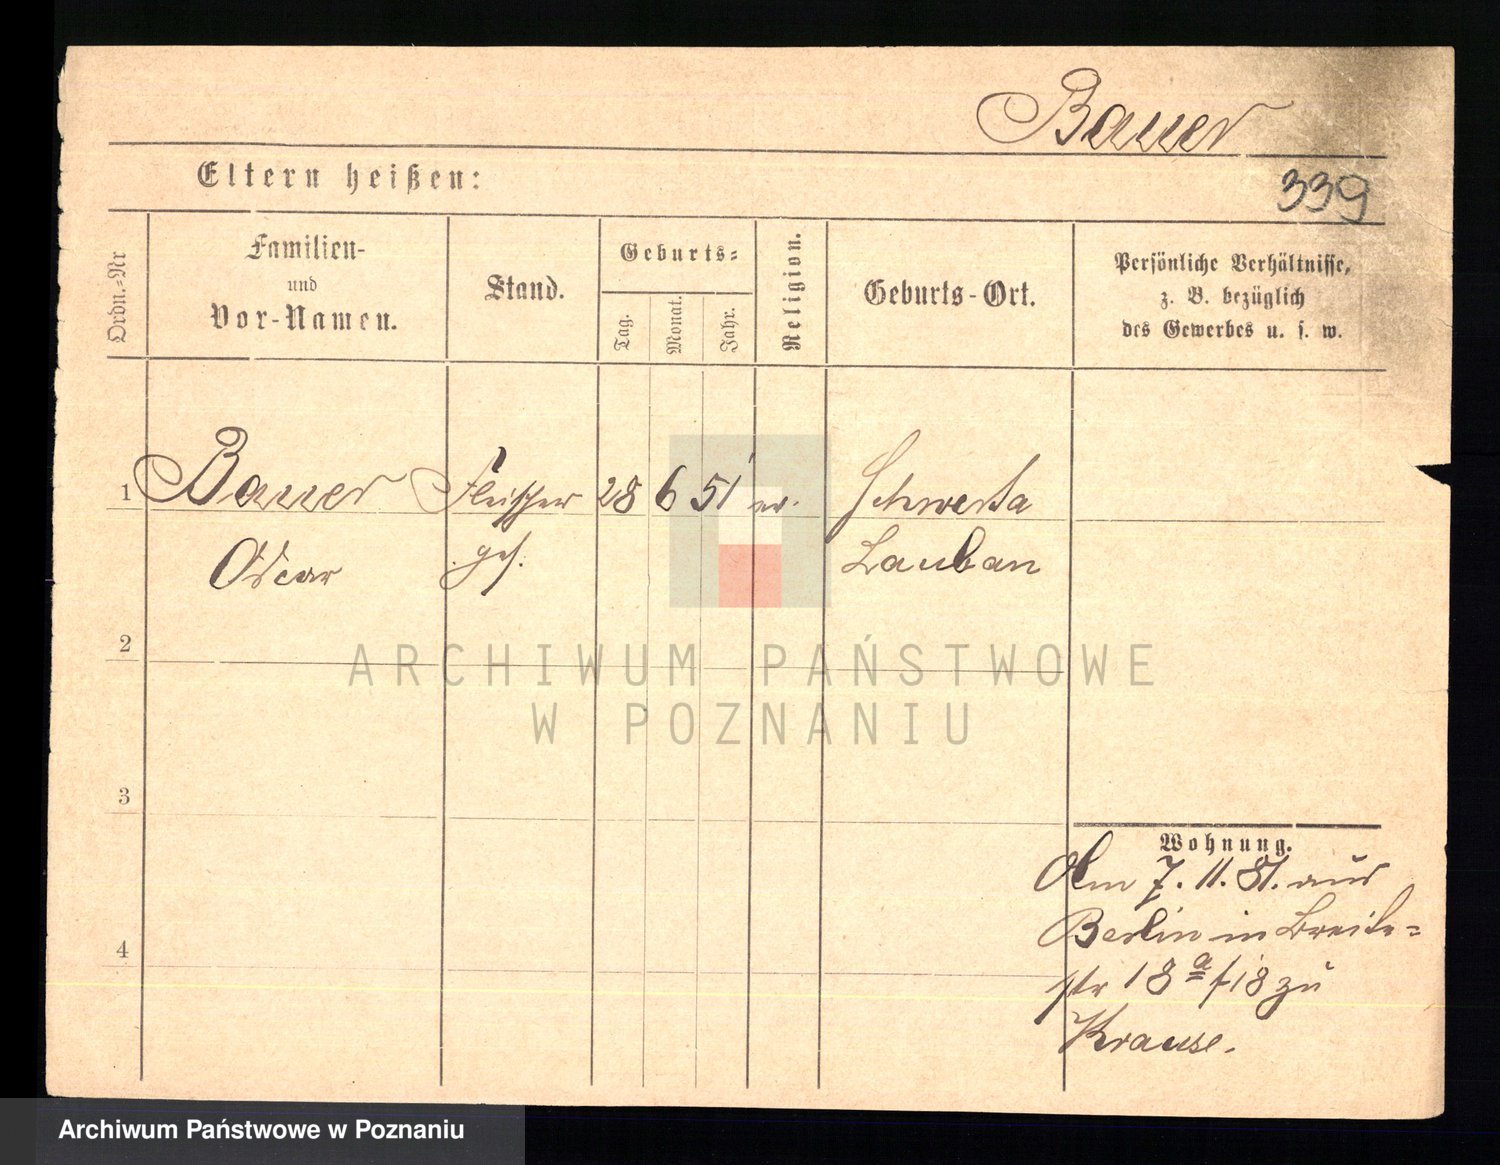 Bauer
Eltern heißen:
339
Ordn.-Nr
Familien-
und
Vor-Namen.
Stand.
Geburts-
Tag.
Monat.
Jahr.
Religion.
Geburts-Ort.
Persönliche Verhältnisse,
z. B. bezüglich
des Gewerbes u. s. w.
1 Bauer Fleischer 28 6 51 ev. Schwerta
Oscar ges. Lauban
2
ARCHIWUM PAŃSTWOWE
W POZNANIU
3
Wohnung.
Am 7. 11. 81. aus
Berlin in Breite-
str 18a zu
4
Krause.
Archiwum Państwowe w Poznaniu